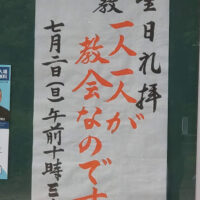 聖日礼拝
説教
一人一人が
教会なのです
七月二日(日)午前十時三十